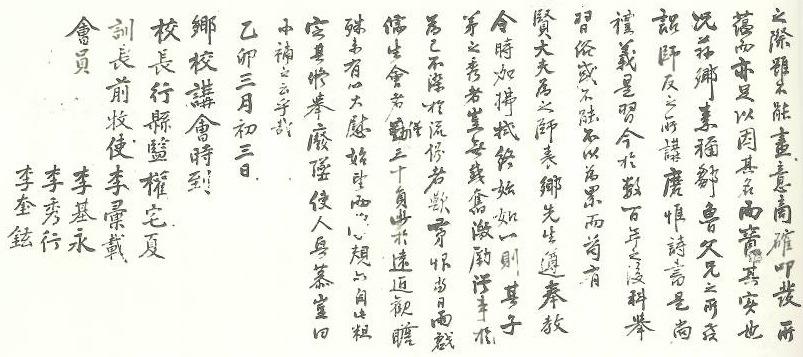 之際雖未能盡意商確叩發所
蘊而亦足以因其名而責其實也
況茲鄉素稱鄒魯父兄之所教
詔師友之所講磨惟詩書是尚
禮義是習今於數百年之後科舉
習俗或不能不以為累而苟有
賢大夫為之師表鄉先生遵奉教
令時加掃拭終始如一則其子
弟之秀者豈無感奮激勵從事於
為己不染於流俗者歟第恨當日雨戲
儒生會者僅三十員於遠近觀瞻
殊未有以大慰始望而自此粗
定其修舉廢墜使人興慕豈曰
小補之云乎哉
乙卯三月初三日
鄉校講會時到
校長行縣監權宅夏
訓長前牧使李彙載
會員 李基永
李秀行
李奎鉉